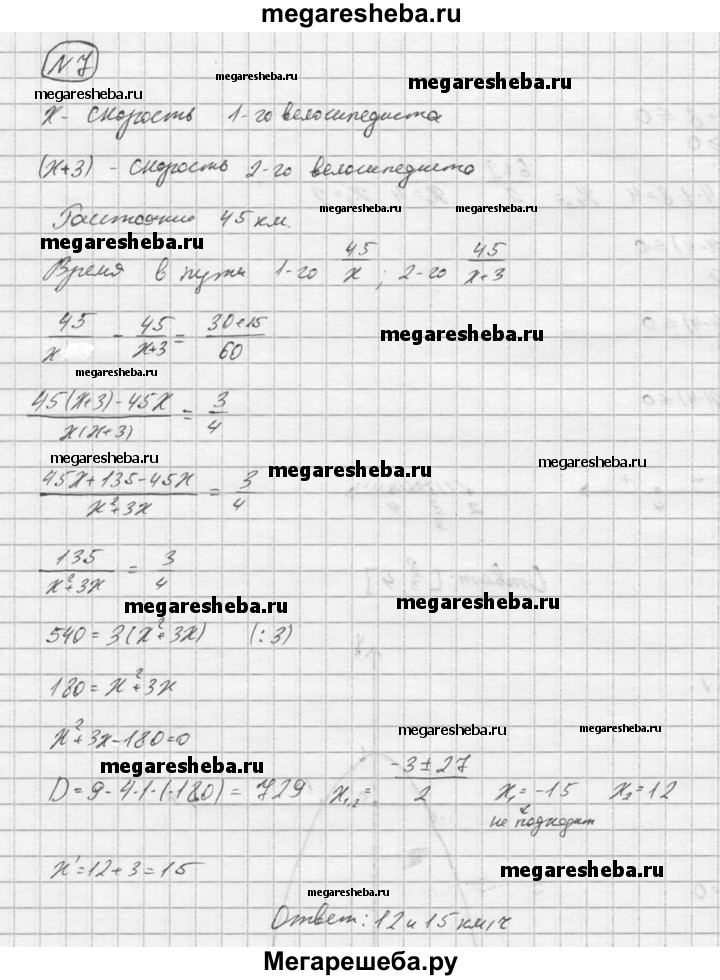 megaresheba.ru
N 7
megaresheba.ru megaresheba.ru megaresheba.ru
x - скорость 1-го велосипедиста
megaresheba.ru
(x+3) - скорость 2-го велосипедиста
megaresheba.ru megaresheba.ru
Расстояние 45 км.
megaresheba.ru
Время в пути 1-го 45/x ; 2-го 45/(x+3)
45/x - 45/(x+3) = (30+15)/60
megaresheba.ru
megaresheba.ru
(45(x+3) - 45x)/(x(x+3)) = 3/4
megaresheba.ru megaresheba.ru megaresheba.ru
(45x + 135 - 45x)/(x²+3x) = 3/4
135/(x²+3x) = 3/4
megaresheba.ru megaresheba.ru
540 = 3(x²+3x) (:3)
180 = x²+3x
x²+3x-180=0
megaresheba.ru megaresheba.ru
megaresheba.ru
D = 9 - 4·1·(-180) = 729 x₁,₂ = (-3 ± 27)/2 x₁ = -15 x₂ = 12
не подходит
x' = 12 + 3 = 15
megaresheba.ru
megaresheba.ru
Ответ: 12 и 15 км/ч
Мегарешеба.ру